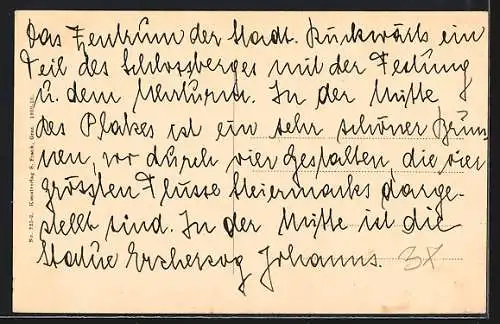 Das Zentrum der Stadt. Rückwärts ein
Teil des Schlossberges mit der Festung
u. dem Uhrturm. In der Mitte
des Platzes ist ein sehr schöner Brun-
nen, wo durch vier Gestalten, die vier
grössten Flüsse Steiermarks darge-
stellt sind. In der Mitte ist die
Statue Erzherzog Johanns. 3X
Kunstverlag Graz